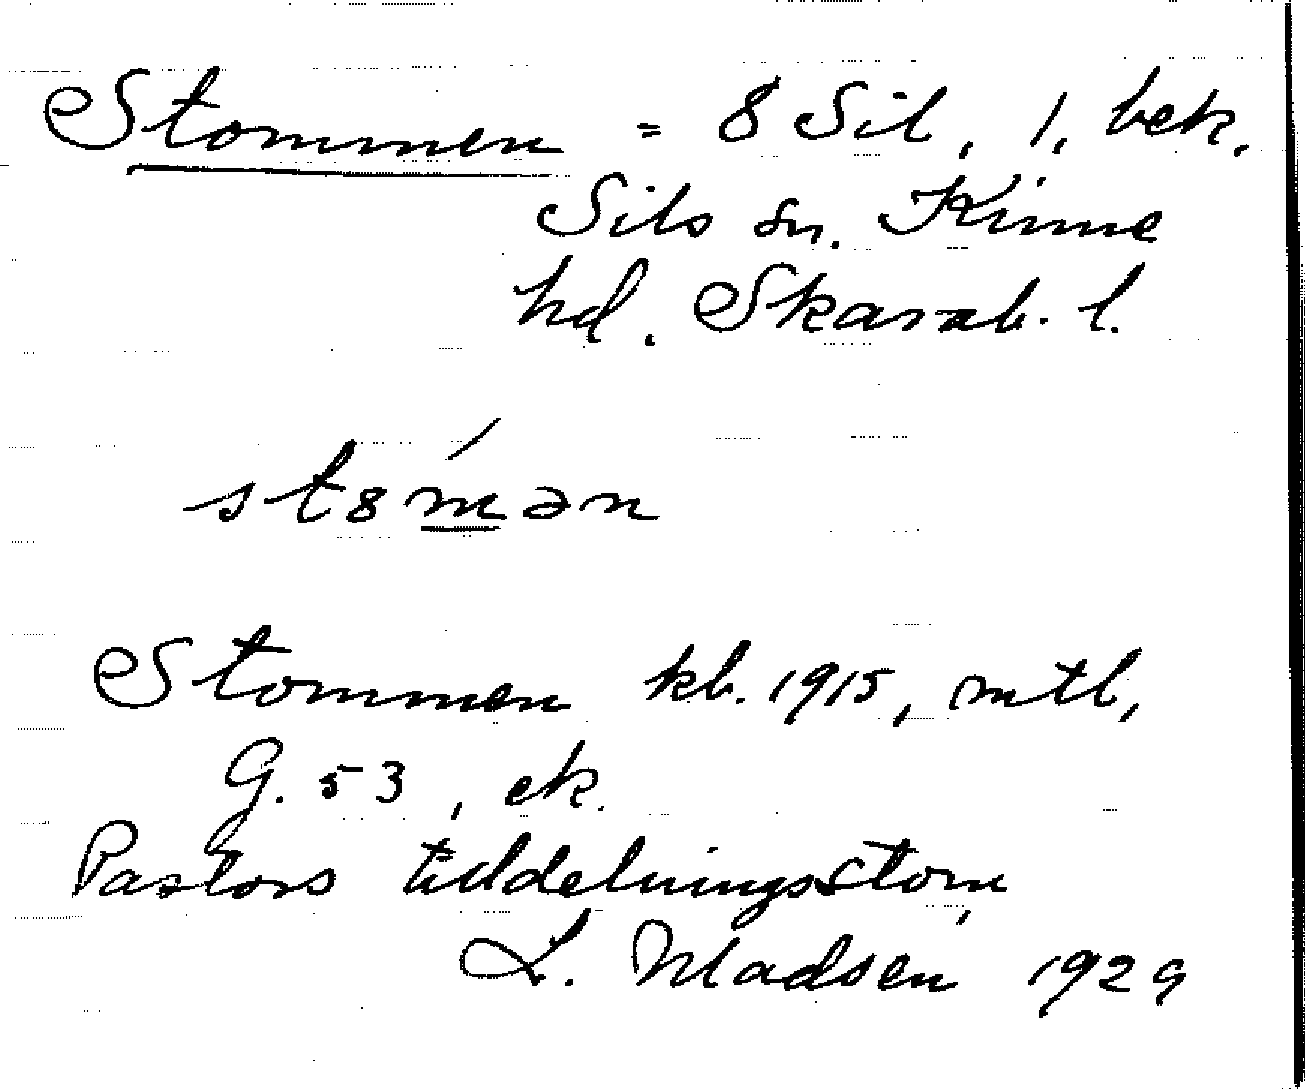 Stommen = 8 Sil, 1, bek.
Sils sn. Kinne
hd. Skarab. l.
st8ḿən
Stommen kb. 1915, mtl,
G. 53, ek.
Pastors tilldelningsstom,
L. Madsén 1929